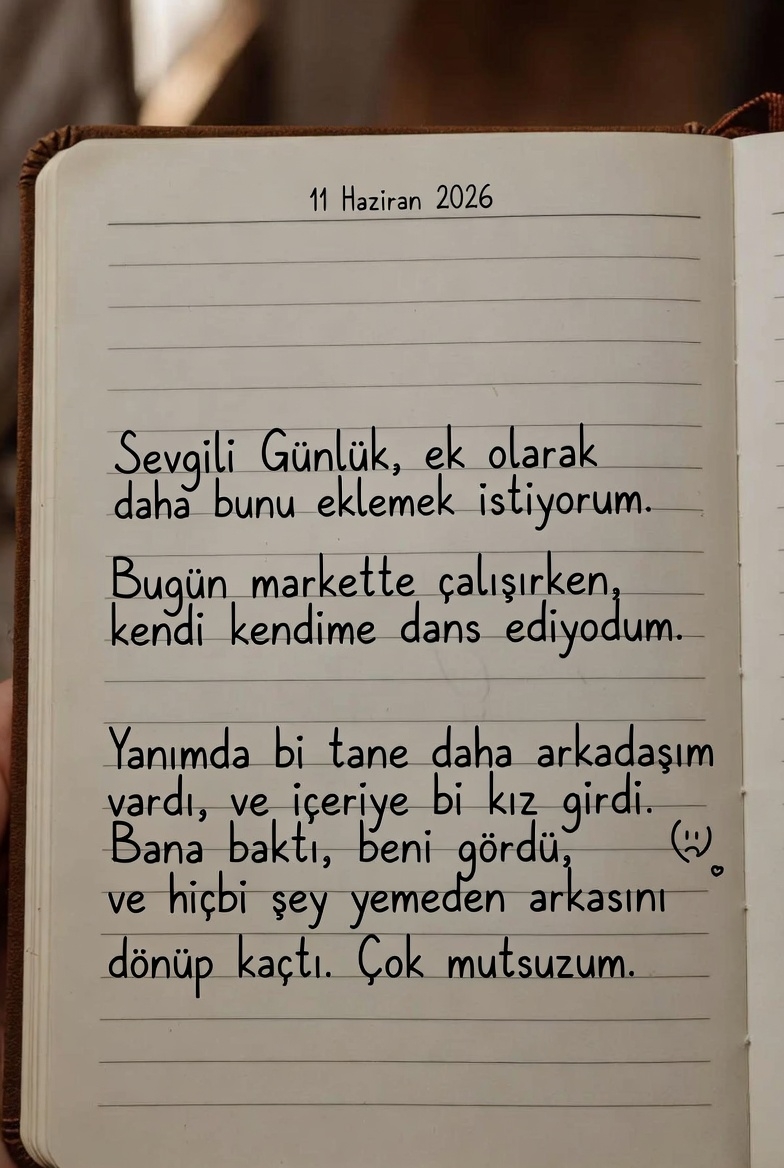 11 Haziran 2026
Sevgili Günlük, ek olarak
daha bunu eklemek istiyorum.
Bugün markette çalışırken,
kendi kendime dans ediyodum.
Yanımda bi tane daha arkadaşım
vardı, ve içeriye bi kız girdi.
Bana baktı, beni gördü,
ve hiçbi şey yemeden arkasını
dönüp kaçtı. Çok mutsuzum.